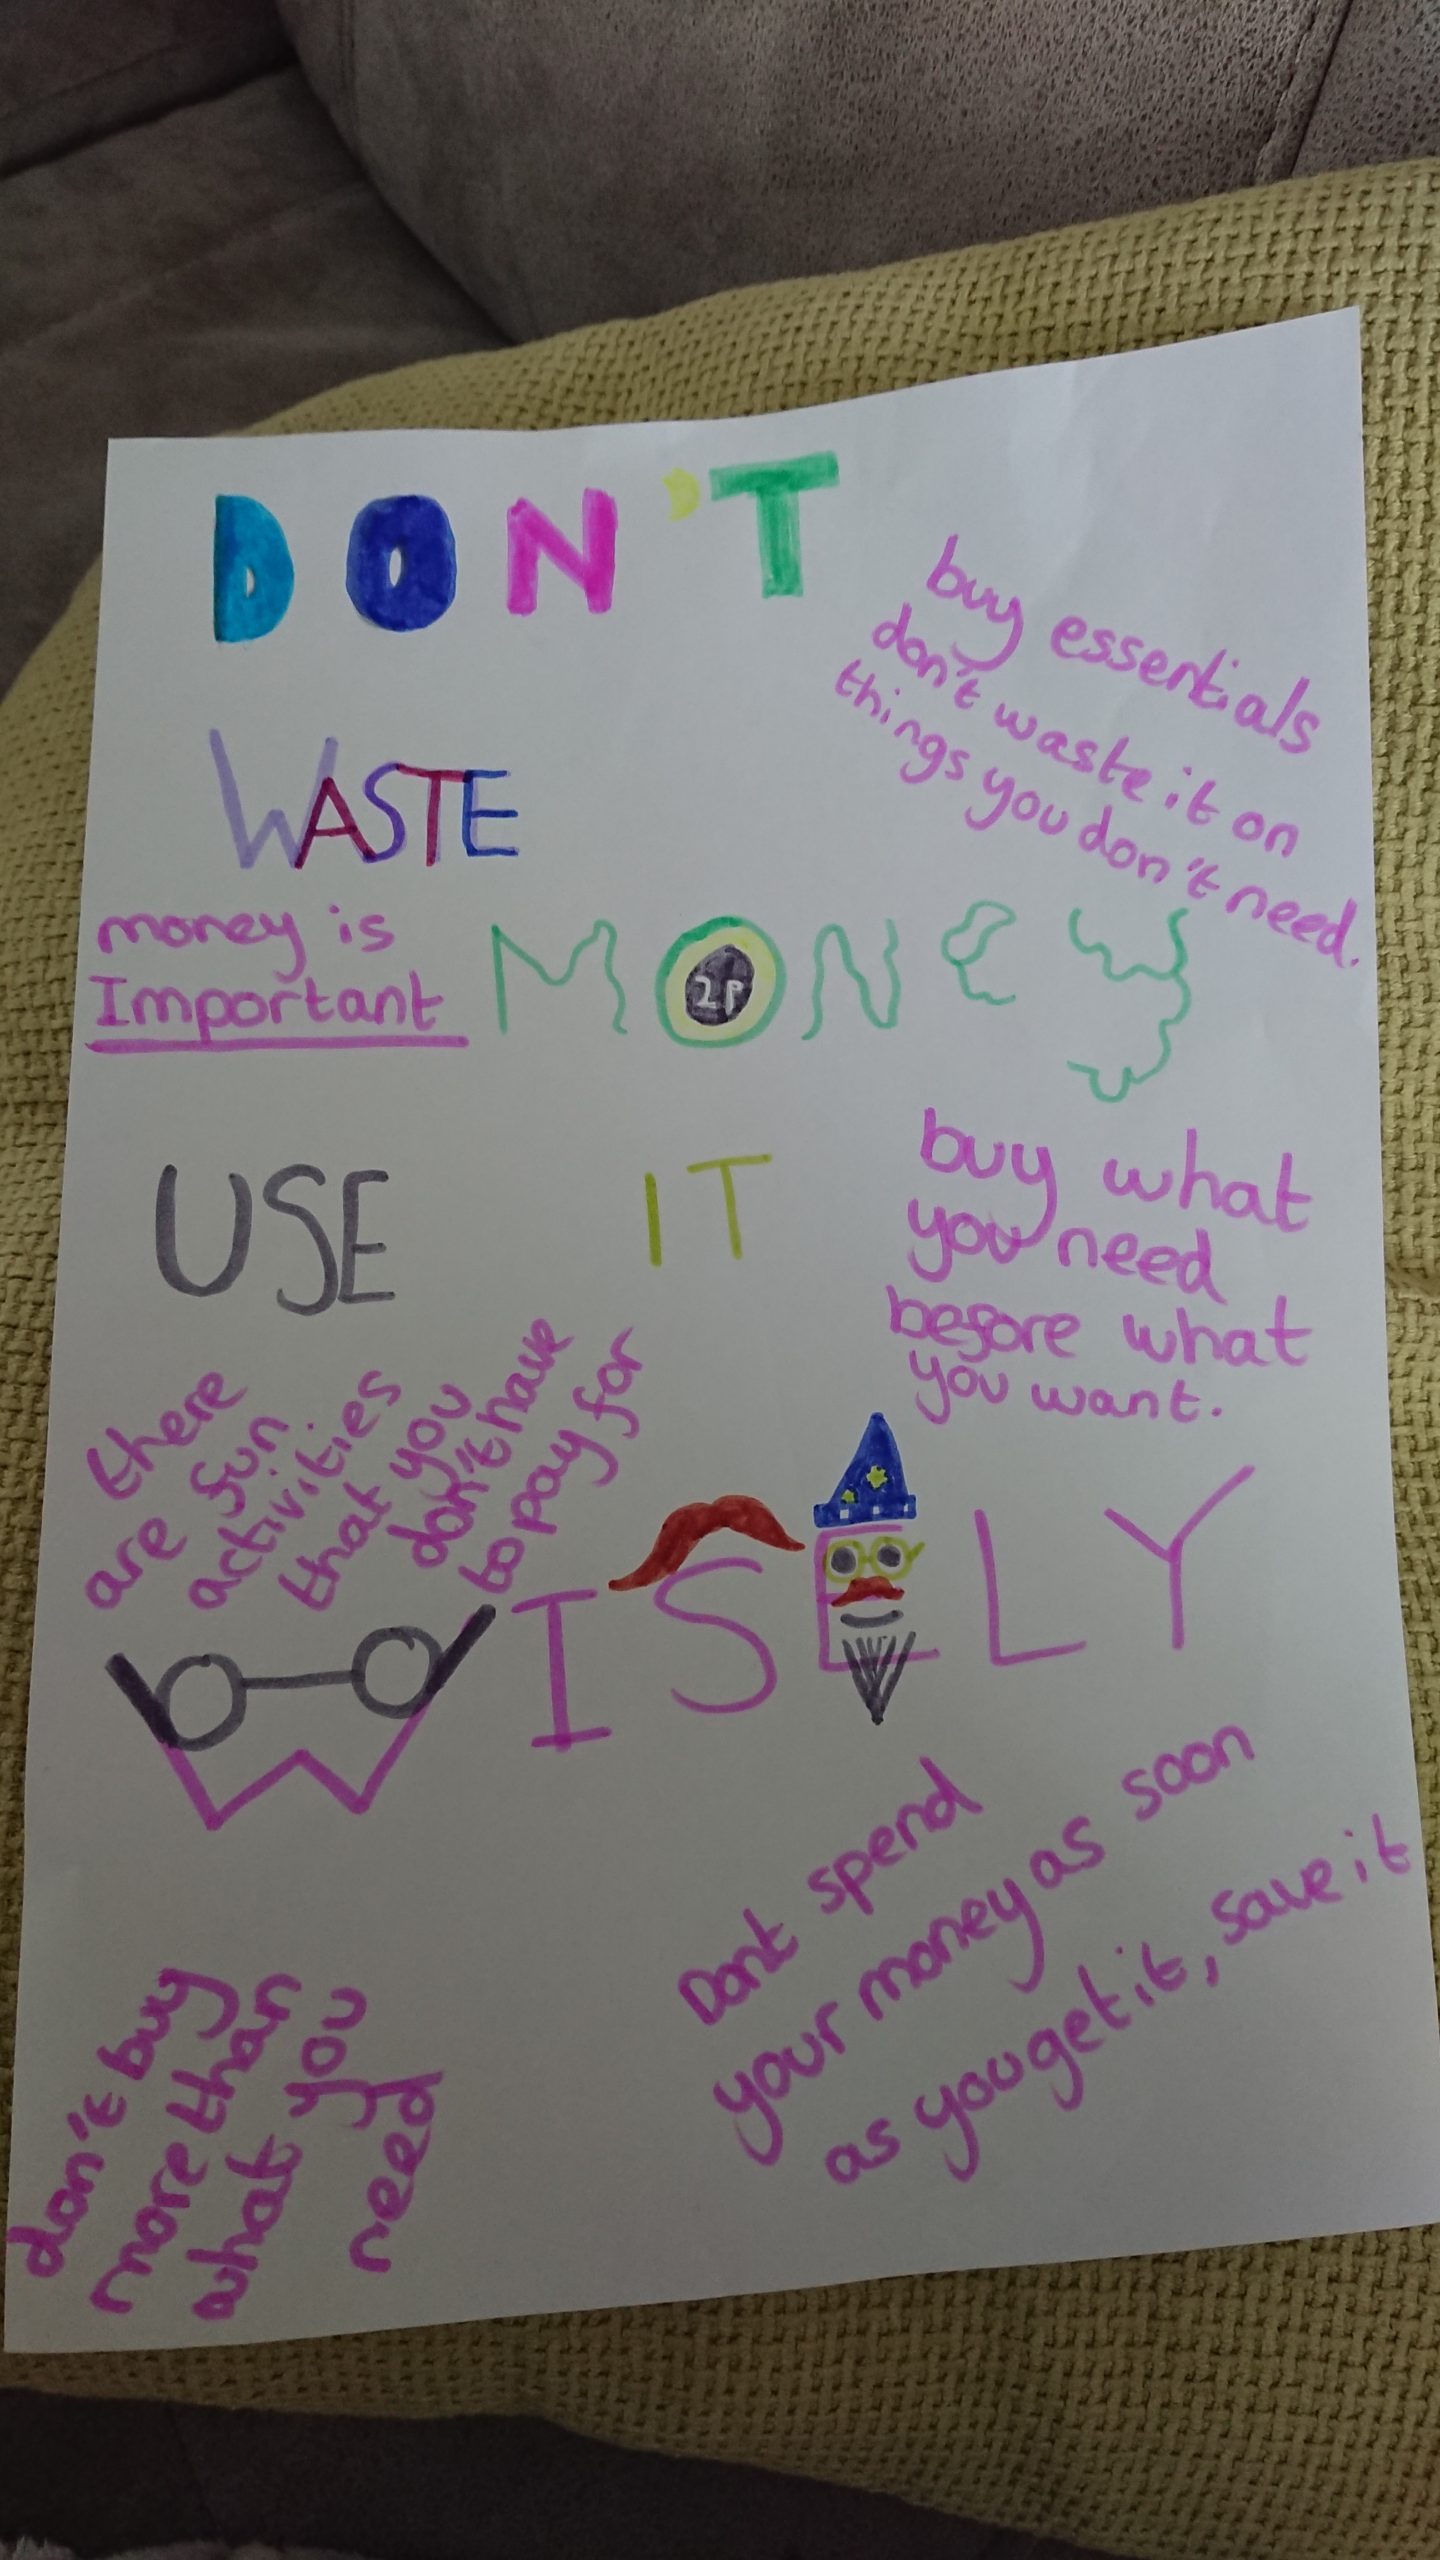 DON'T
buy essentials
don't waste it on
things you don't need.
WASTE
money is
Important
MONEY
2P
USE IT
buy what
you need
before what
you want.
there
are fun
activities
that you
don't have
to pay for
WISELY
Dont spend
your money as soon
as you get it, save it
don't buy
more than
what you
need